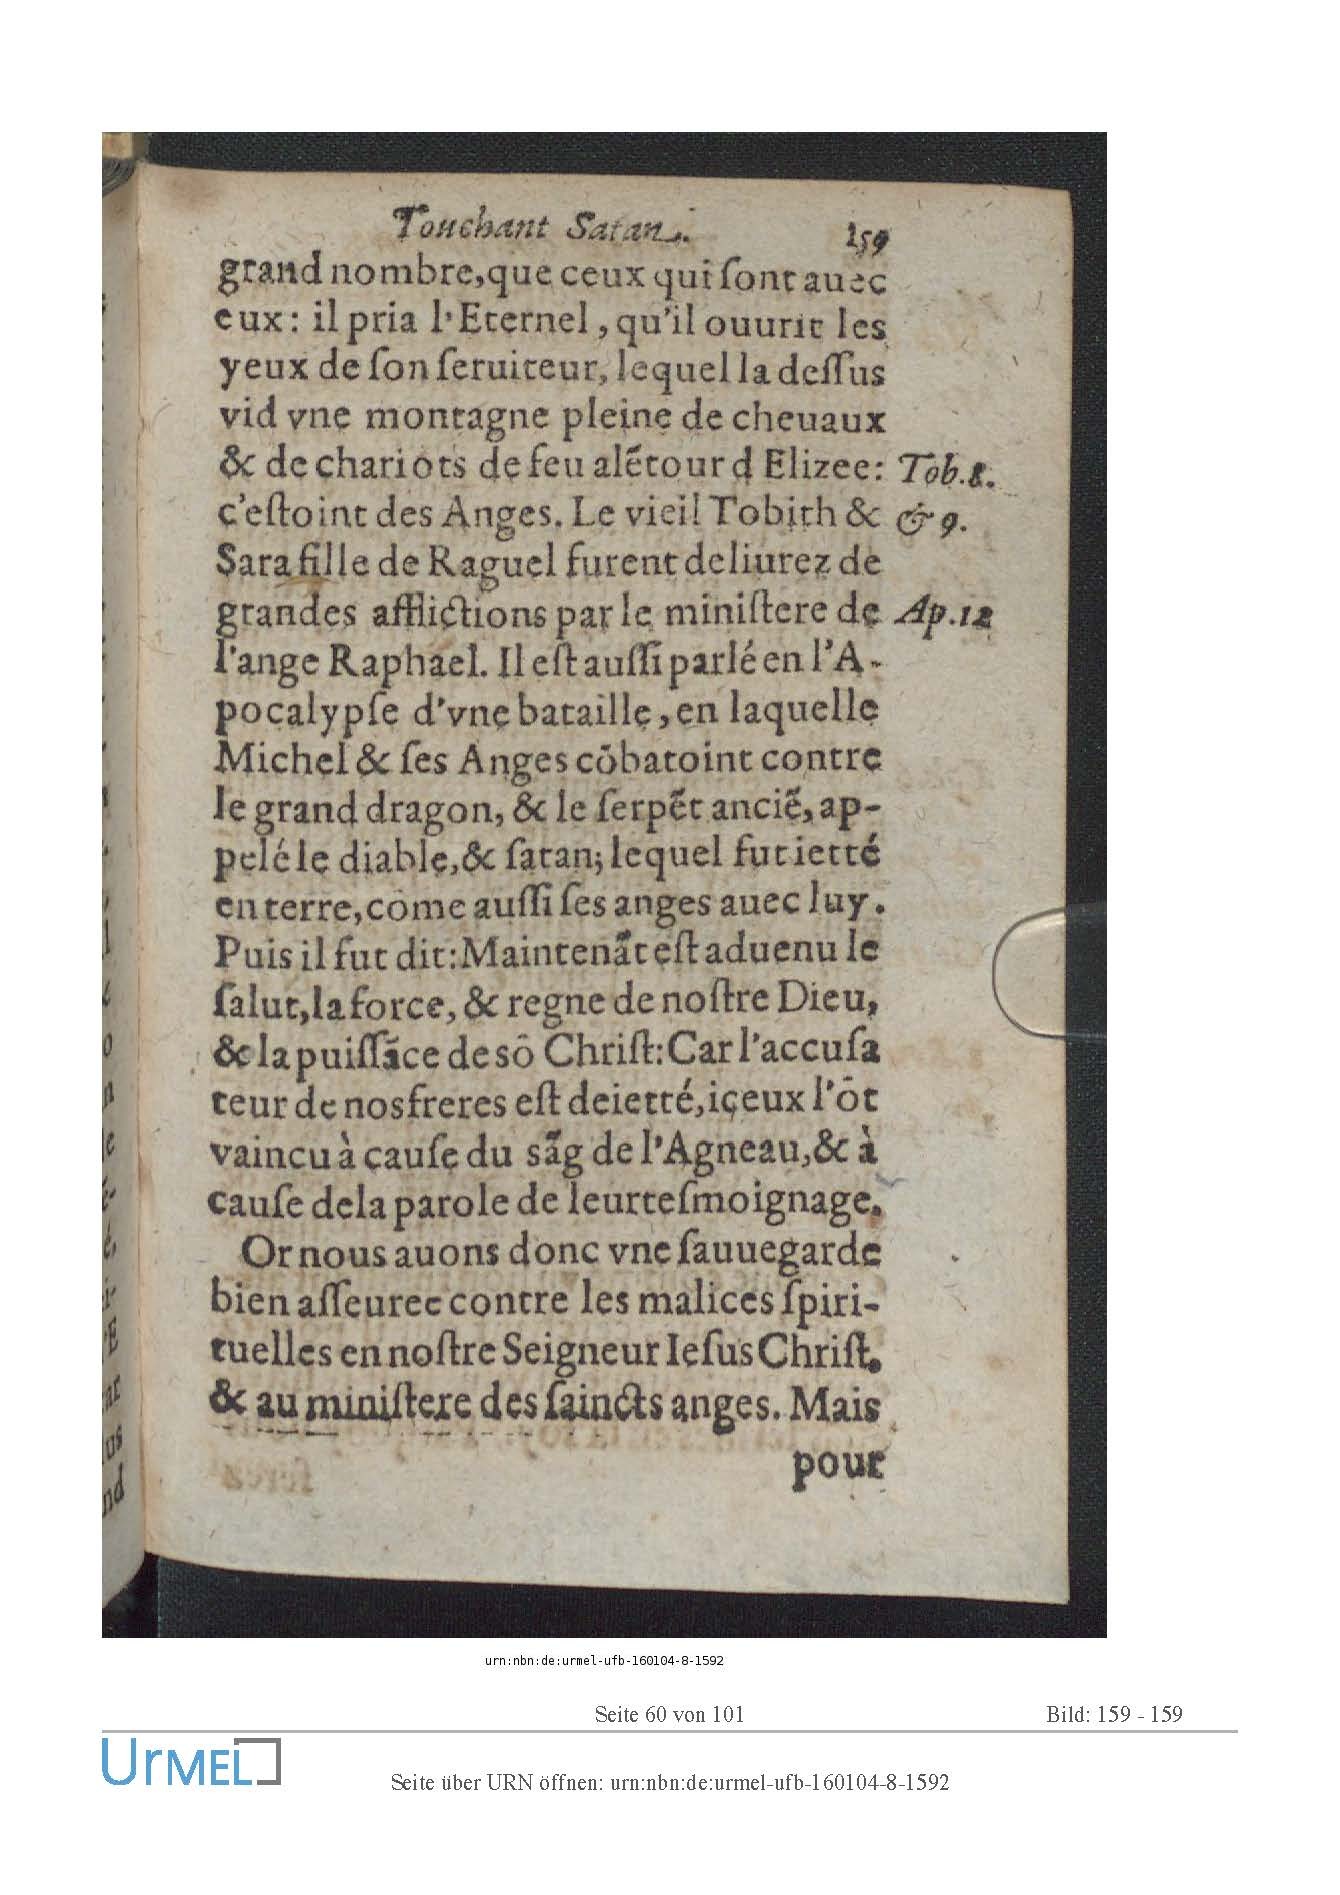 Touchant Satan. 159
grand nombre, que ceux qui ſont auec
eux: il pria l'Eternel, qu'il ouurit les
yeux de ſon ſeruiteur, lequel la deſſus
vid vne montagne pleine de cheuaux
& de chariots de feu alẽtour d Elizee: Tob.8.
c'eſtoint des Anges. Le vieil Tobith & & 9.
Sara fille de Raguel furent deliurez de
grandes afflictions par le miniſtere de Ap.12
l'ange Raphael. Il eſt auſſi parlé en l'A-
pocalypſe d'vne bataille, en laquelle
Michel & ſes Anges cõbatoint contre
le grand dragon, & le ſerpẽt anciẽ, ap-
pelé le diable, & ſatan; lequel fut ietté
en terre, cõme auſſi ſes anges auec luy.
Puis il fut dit: Maintenãt eſt aduenu le
ſalut, la force, & regne de noſtre Dieu,
& la puiſſãce de sõ Chriſt: Car l'accuſa
teur de nos freres eſt deietté, iceux l'õt
vaincu à cauſe du sãg de l'Agneau, & à
cauſe dela parole de leur teſmoignage.
Or nous auons donc vne ſauuegarde
bien aſſeuree contre les malices ſpiri-
tuelles en noſtre Seigneur Ieſus Chriſt.
& au miniſtere des ſaincts anges. Mais
pour
urn:nbn:de:urmel-ufb-160104-8-1592
Seite 60 von 101 Bild: 159 - 159
UrMEL
Seite über URN öffnen: urn:nbn:de:urmel-ufb-160104-8-1592